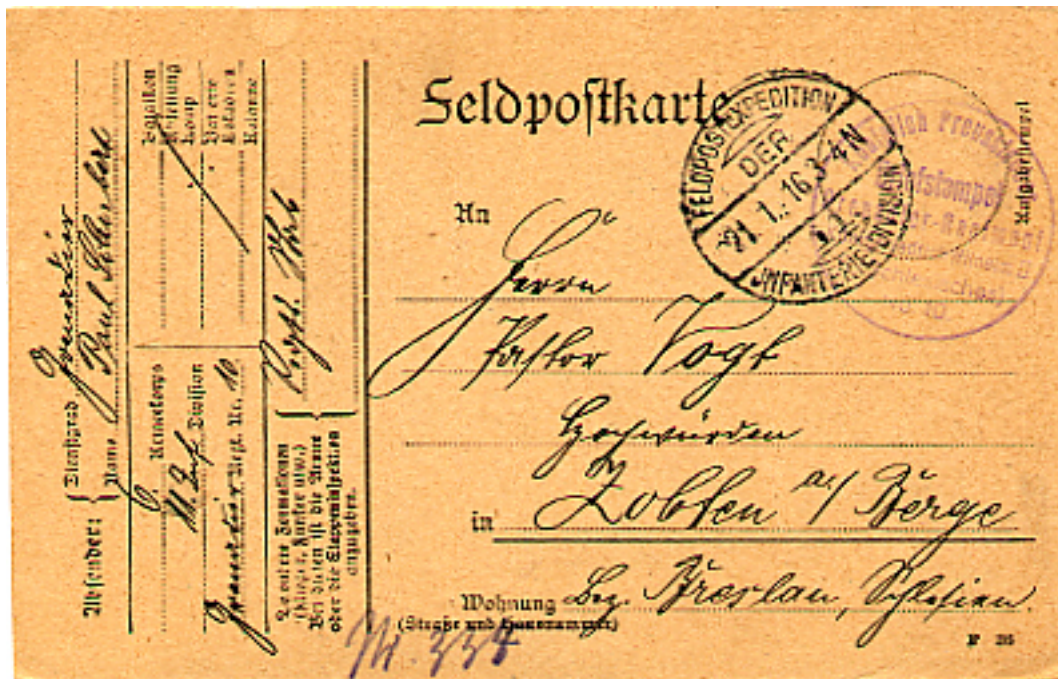 Feldpostkarte
FELDPOSTEXPEDITION
DER
21.1.16 3-4 N
11.
INFANTERIEDIVISION
Königlich Preuss
Aufgabestempel
An
Herrn
Pastor Vogt
Hochwürden
in Zobten a/ Berge
Wohnung Bez. Breslau, Schlesien.
(Straße und Hausnummer)
F 26
Nr. 334
Absender:
Dienstgrad Grenadier
Name Paul
Armeekorps
11. Inf. Division
Grenadir Regt. Nr. 10
Bataillon
Abteilung
Komp.
Batterie
Eskadron
Kolonne
Besondere Formationen
(Flieger, Funker usw.)
Bei diesen ist die Armee
oder die Etappeninspektion
anzugeben.